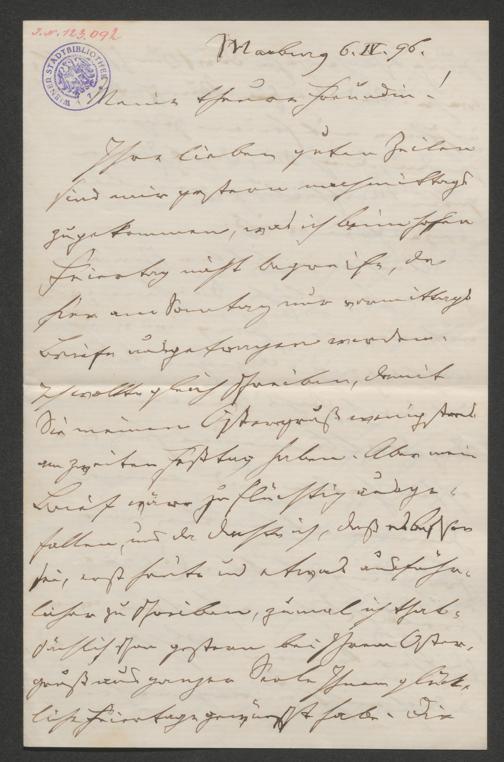 J.N. 123.092
WIENER STADTBIBLIOTHEK
Marburg 6. IV. 96.
Meine theuere Freundin!
Ihre lieben guten Zeilen
sind mir gestern nachmittags
zugekommen, was ich beim hohen
Feiertag nicht begreife, da
hier am Sonntag nur vormittags
Briefe ausgetragen werden.
Ich wollte gleich schreiben, damit
Sie meinen Ostergruß wenigstens
am zweiten Festtag haben. Aber mein
Brief wäre zu flüchtig ausge-
fallen, und da dachte ich, daß es besser
sei, erst heute und etwas ausführ-
licher zu schreiben, zumal ich that-
sächlich schon gestern bei Ihrem Oster-
gruß aus ganzer Seele Ihnen glück-
liche Feiertage gewünscht habe. Die